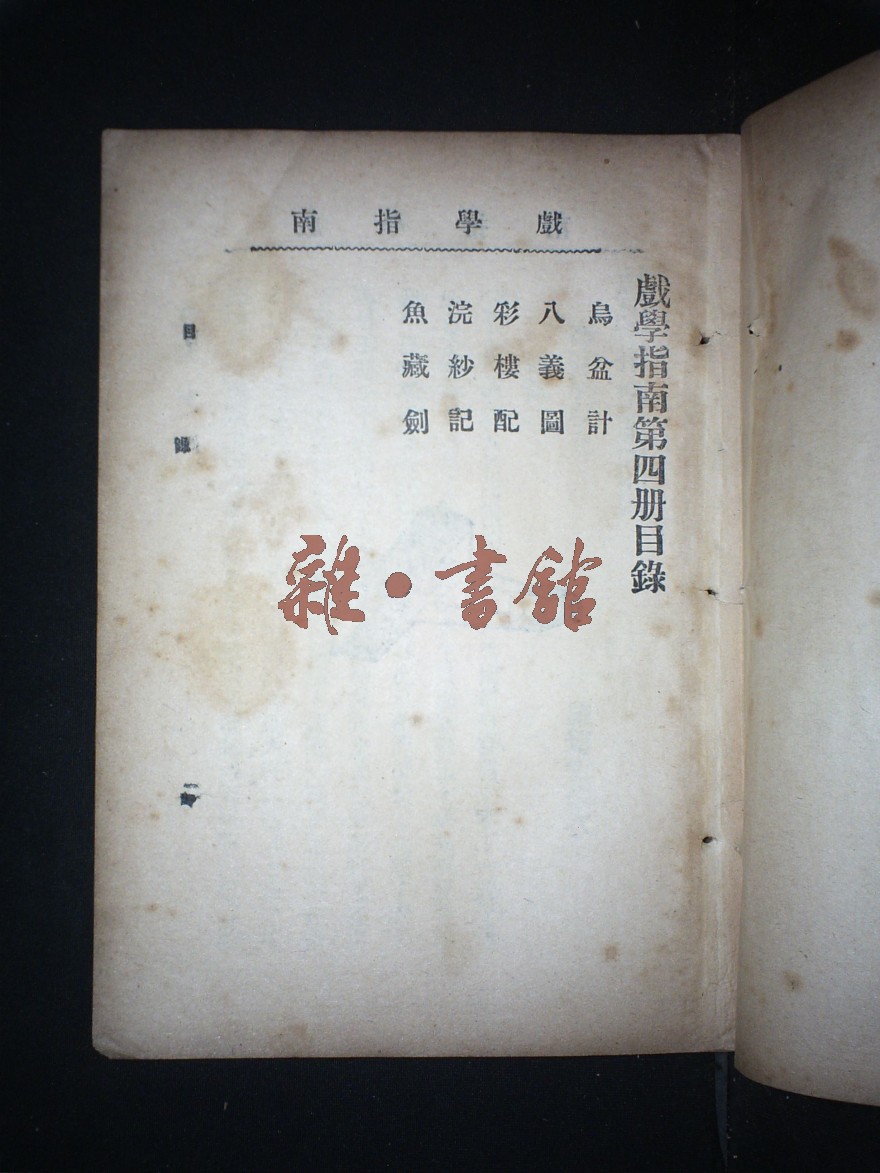 戲學指南
戲學指南第四册目錄
烏盆計
八義圖
彩樓配
浣紗記
魚藏劍
目錄
一
雜·書館